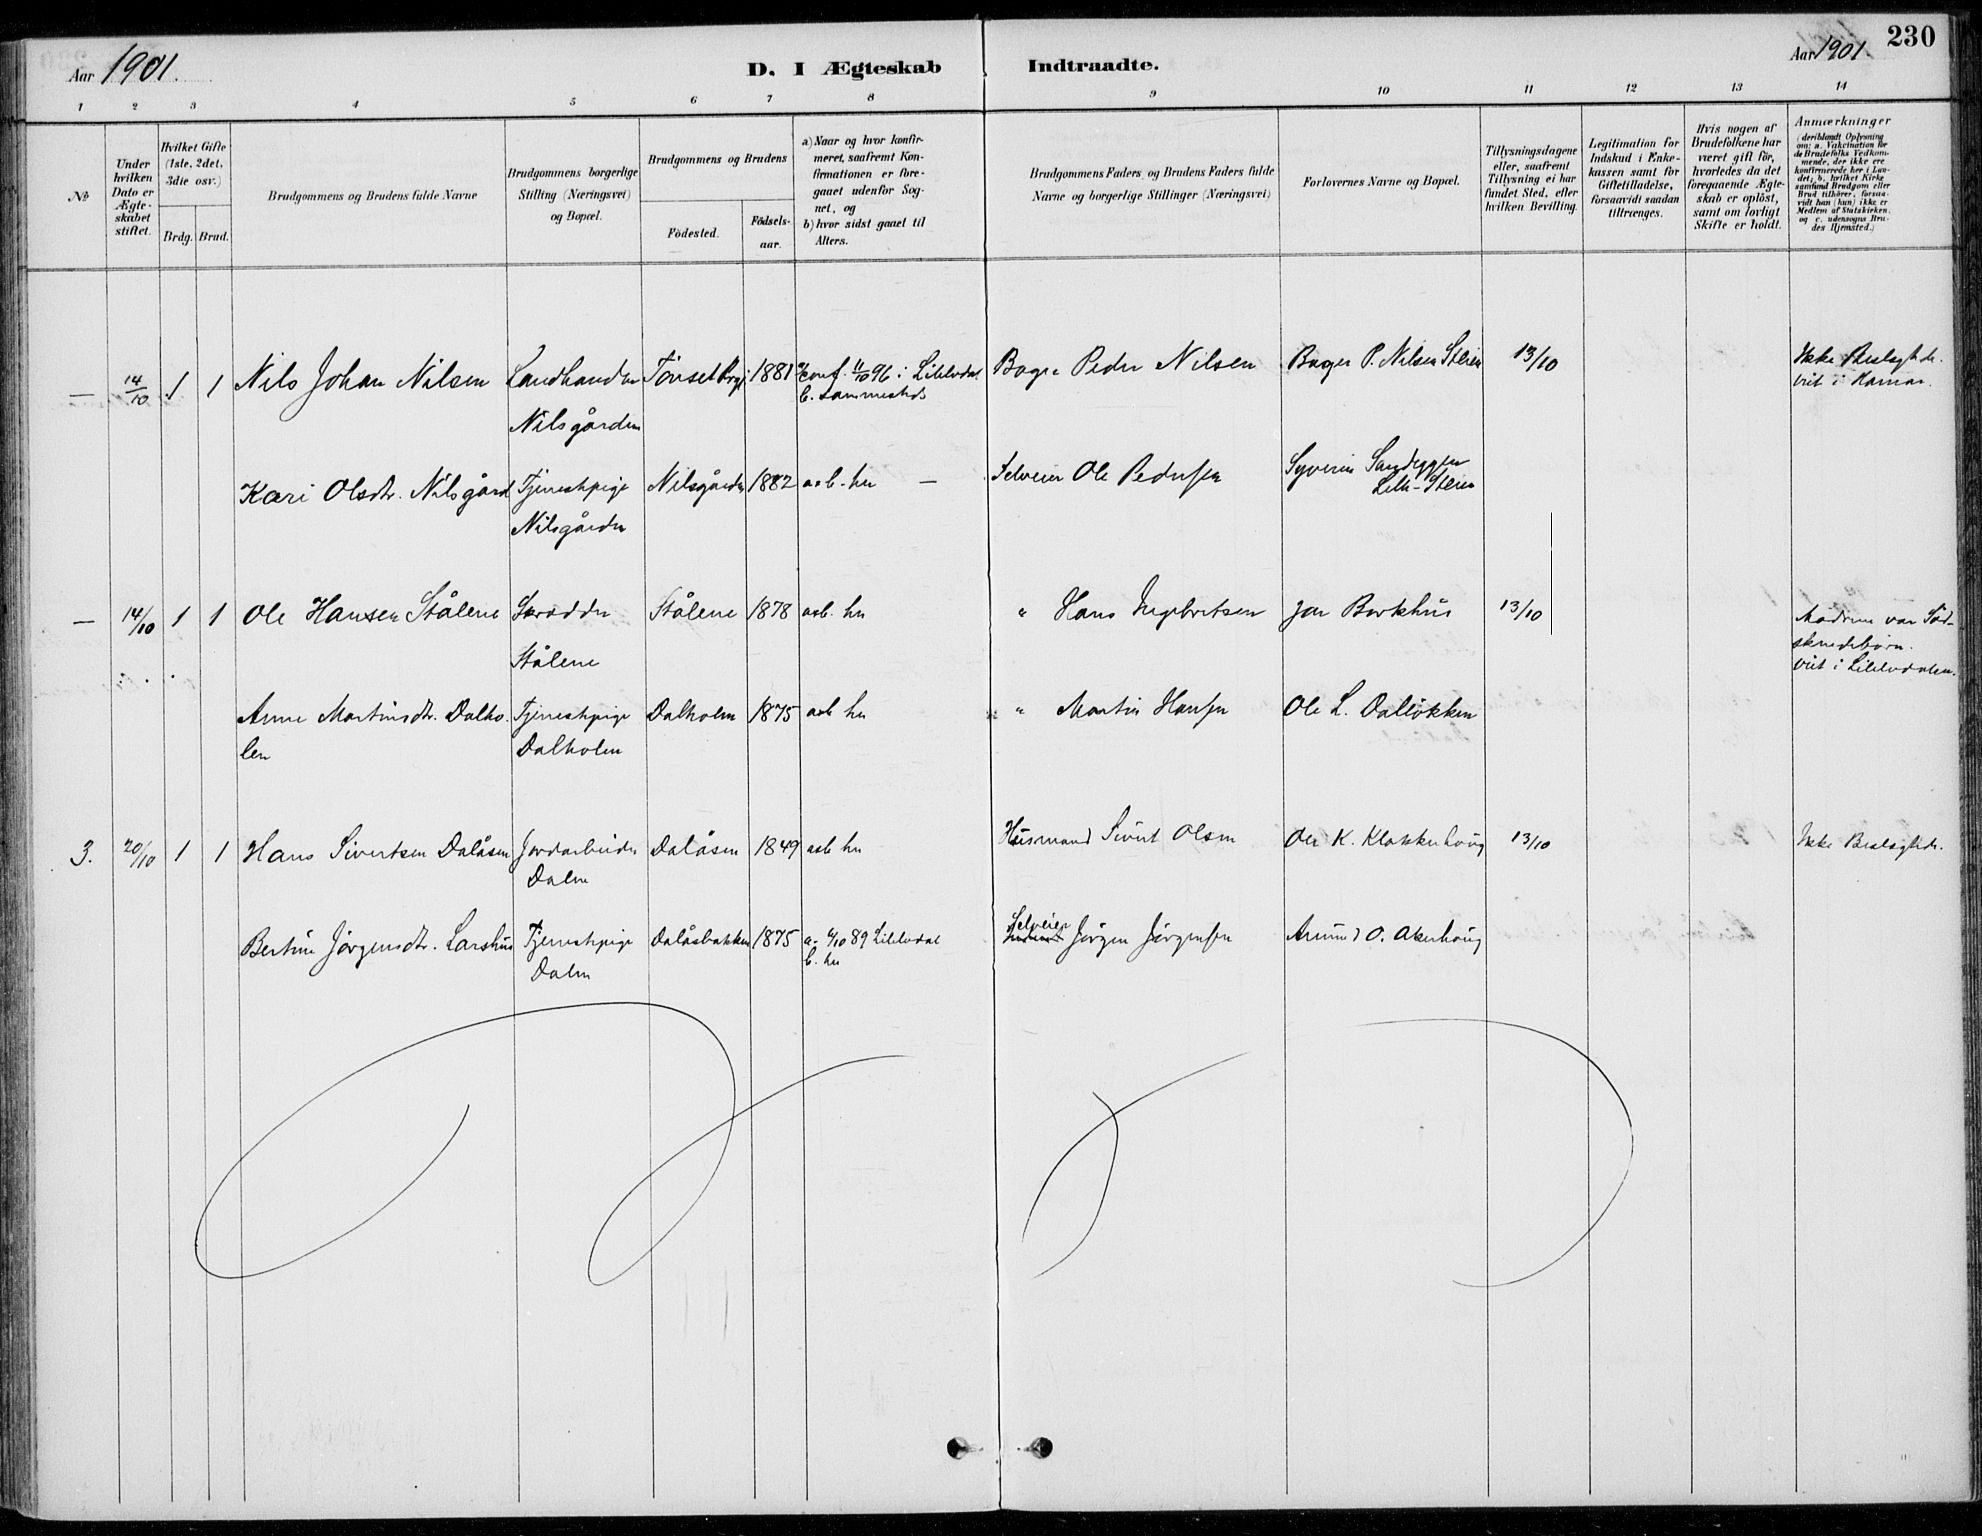 Aar 1901.
D. I Ægteskab Indtraadte.
Aar 1901. 230
1 2 3 4 5 6 7 8 9 10 11 12 13 14
No
Under hvilken Dato er Ægte-skabet stiftet.
Hvilket Gifte (1ste, 2det, 3die osv.)
Brdg. Brud.
Brudgommens og Brudens fulde Navne
Brudgommens borgerlige Stilling (Næringsvei) og Bopæl.
Brudgommens og Brudens
Födested. Födsels-aar.
a) Naar og hvor konfir-meret, saafremt Kon-firmationen er fore-gaaet udenfor Sog-net, og
b) hvor sidst gaaet til Alters.
Brudgommens Faders, og Brudens Faders fulde Navne og borgerlige Stillinger (Næringsvei)
Forlovernes Navne og Bopæl.
Tillysningsdagene eller, saafremt Tillysning ei har fundet Sted, efter hvilken Bevilling.
Legitimation for Indskud i Enke-kassen samt for Giftetilladelse, forsaavidt saadan tiltrænges.
Hvis nogen af Brudefolkene har været gift för, hvorledes da det foregaaende Ægte-skab er oplöst, samt om lovligt Skifte er holdt.
Anmærkninger
(deriblandt Oplysning om: a. Vakcination for de Brudefolks Vedkom-mende, der ikke ere konfirmerede her i Lan-det; b. hvilket Kirke-samfund Brudgom eller Brud tilhörer, forsaa-vidt han (hun) ikke er Medlem af Statskirken, og c. udensogns Bru-des Hjemsted.)
— 14/10 1 1 Nils Johan Nilsen Landhandler Tönset 1881 a) conf. 11/10 96 i Lilleelvdal Bager Peder Nilsen Bager P. Nilsen Steien 13/10 Ikke Beslægtede.
b. sammesteds viet i Hamar.
Nilsgården
Kari Olsdtr. Nilsgård Tjenestepige Nilsgården 1882 a o b. her — Selveier Ole Pedersen Syverin Sandeggen
Lille-Steien
Nilsgården
— 14/10 1 1 Ole Hansen Stålene Skrædder Stålene 1878 a o b. her " Hans Ingebretsen Jon Borkhus 13/10 Mödrene var Söd-
skendebörn.
Stålene viet i Lilleelvdalen.
Anne Martinsdtr. Dalho- Tjenestepige Dalholen 1875 a o b her " Martin Hansen Ole L. Dallökken
len Dalholen
3. 20/10 1 1 Hans Sivertsen Dalåsen Jordarbeider Dalåsen 1849 a o b her Husmand Sivert Olsen Ole K. Klokkerhaug 13/10 Ikke Beslægtede.
Dalen
Selveier
Bertine Jörgensdtr. Larshus Tjenestepige Dalåsbakken 1875 a. 6/10 89 Lilleelvdal Jörgen Jörgensen Amund O. Akerhaug
Dalen b. her